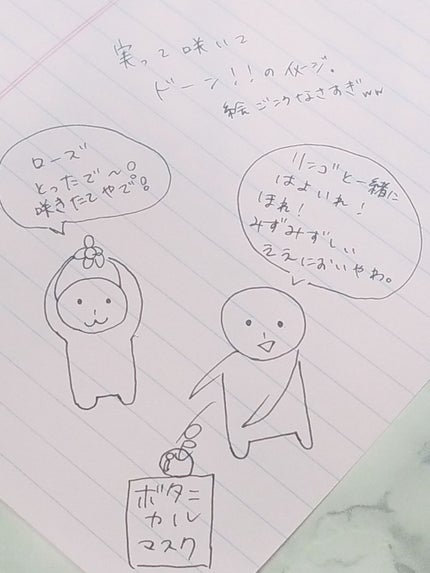 実って咲いて
ドーン!!のイメージ。
絵ジワなさすぎww
ローズ
とったで〜。
咲きたてやで!!
リンゴと一緒に
はよいれ!
ほれ!
みずみずしい
ええにおいやわ。
ボタニ
カル
マスク